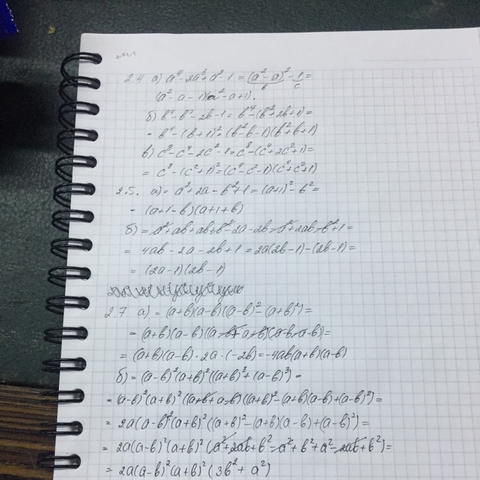 2.4 а) a⁴-2a³+a²-1=(a²-a)²-1=
(a²-a-1)(a²-a+1).
б) b⁴-b²-2b-1=b⁴-(b²+2b+1)=
= b⁴-(b+1)²=(b²-b-1)(b²+b+1)
в) c⁸-c⁴-2c²-1=c⁸-(c⁴+2c²+1)=
= c⁸-(c²+1)²=(c⁴-c²-1)(c⁴+c²+1)
2.5. а)= a²+2a-b²+1=(a+1)²-b²=
= (a+1-b)(a+1+b)
= 4ab-2a-2b+1=2a(2b-1)-(2b-1)=
= (2a-1)(2b-1)
2.7 а)= (a+b)(a-b)((a-b)²-(a+b)²)=
= (a+b)(a-b)·2a·(-2b)=-4ab(a+b)(a-b)
б)= (a-b)²(a+b)²((a+b)³+(a-b)³)=
= (a-b)²(a+b)²(a+b+a-b)((a+b)²-(a+b)(a-b)+(a-b)²)=
= 2a(a-b)²(a+b)²((a+b)²-(a+b)(a-b)+(a-b)²)=
= 2a(a-b)²(a+b)²(a²+2ab+b²-a²+b²+a²-2ab+b²)=
= 2a(a-b)²(a+b)²(3b²+a²)